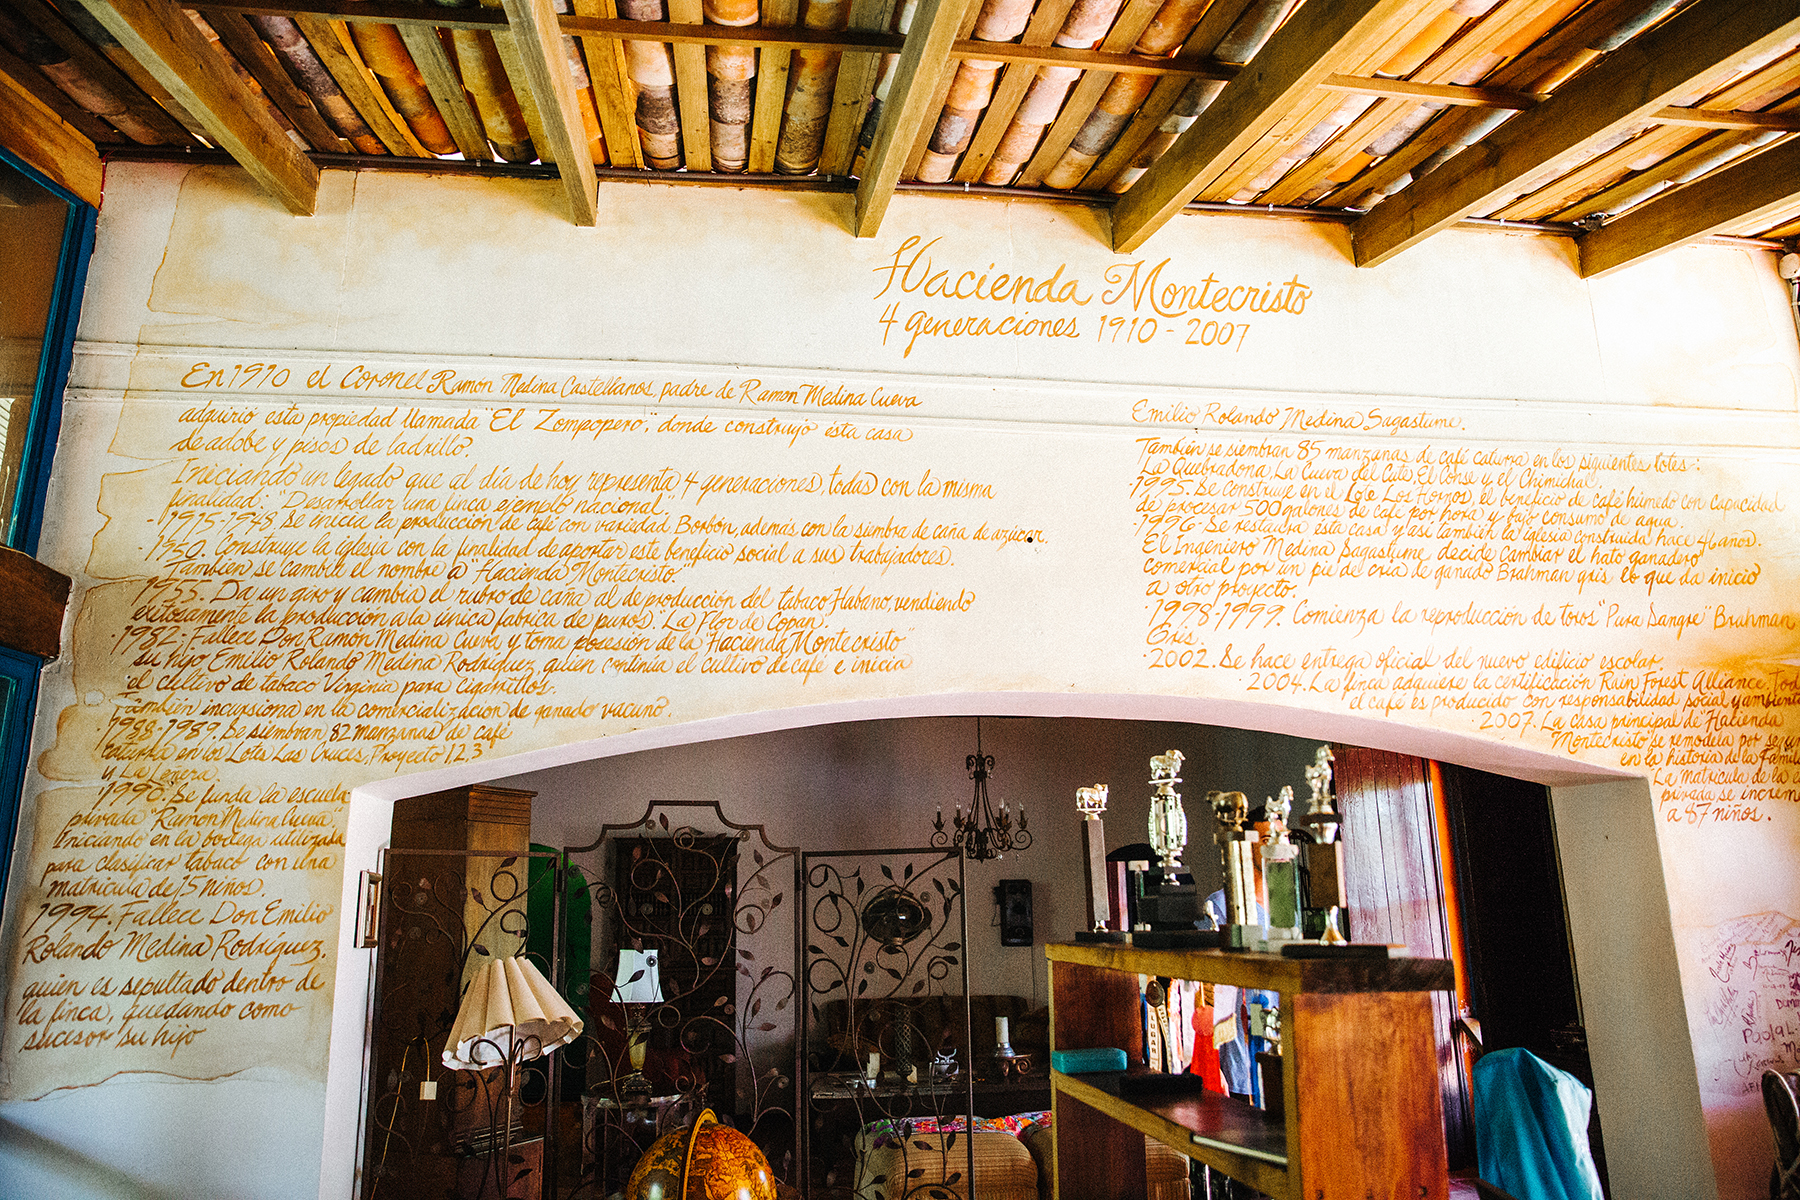 Hacienda Montecristo
4 generaciones 1910 - 2007
En 1910 el Coronel Ramon Medina Castellanos, padre de Ramon Medina Cueva
adquirio esta propiedad llamada "El Zompopero", donde construjo ésta casa
de adobe y pisos de ladrillo.
Iniciando un legado que al día de hoy representa 4 generaciones, todas con la misma
finalidad: "Desarrollar una finca ejemplo nacional."
-1915-1948 Se inicia la producción de café con variedad Borbón, además con la siembra de caña de azúcar.
-1950. Construye la iglesia con la finalidad de aportar este beneficio social a sus trabajadores.
También se cambia el nombre a "Hacienda Montecristo."
1955. Da un giro y cambia el rubro de caña al de producción del tabaco Habano, vendiendo
exitosamente la producción a la única fabrica de puros. "La Flor de Copan".
·1982- Fallece Don Ramón Medina Cueva y toma posesión de la "Hacienda Montecristo"
su hijo Emilio Rolando Medina Rodríguez, quien continúa el cultivo de café e inicia
el cultivo de tabaco Virginia para cigarrillos.
También incursiona en la comercializacion de ganado vacuno.
1988-1989. Se siembran 82 manzanas de café
caturra en los Lotes Las Cruces, Proyecto 1,2,3
y La Leñera.
"1990". Se funda la escuela
privada "Ramón Medina Cueva".
Iniciando en la bodega utilizada
para clasificar tabaco con una
matrícula de 15 niños.
1994. Fallece Don Emilio
Rolando Medina Rodríguez.
quien es sepultado dentro de
la finca, quedando como
sucesor su hijo
Emilio Rolando Medina Sagastume.
También se siembran 85 manzanas de café caturra en los siguientes lotes:
La Quebradona, La Cueva del Cute, El Conse y el Chimichal.
·1995. Se construye en el Lote Los Hornos, el beneficio de café húmedo con capacidad
de procesar 500 galones de café por hora y bajo consumo de agua.
·1996- Se restaura ésta casa y así también la iglesia construida hace 46 años.
El Ingeniero Medina Sagastume, decide cambiar el hato ganadero
comercial por un pie de cría de ganado Brahman gris, lo que da inicio
a otro proyecto.
·1998-1999. Comienza la reproducción de toros "Pura Sangre" Brahman
Gris.
·2002. Se hace entrega oficial del nuevo edificio escolar.
2004. La finca adquiere la certificación Rain Forest Alliance. Tod
el café es producido con responsabilidad social y ambient
·2007. La casa principal de "Hacienda
Montecristo" se remodela por segun
en la historia de la Famili
"La matrícula de la e
privada se increme
a 87 niños.